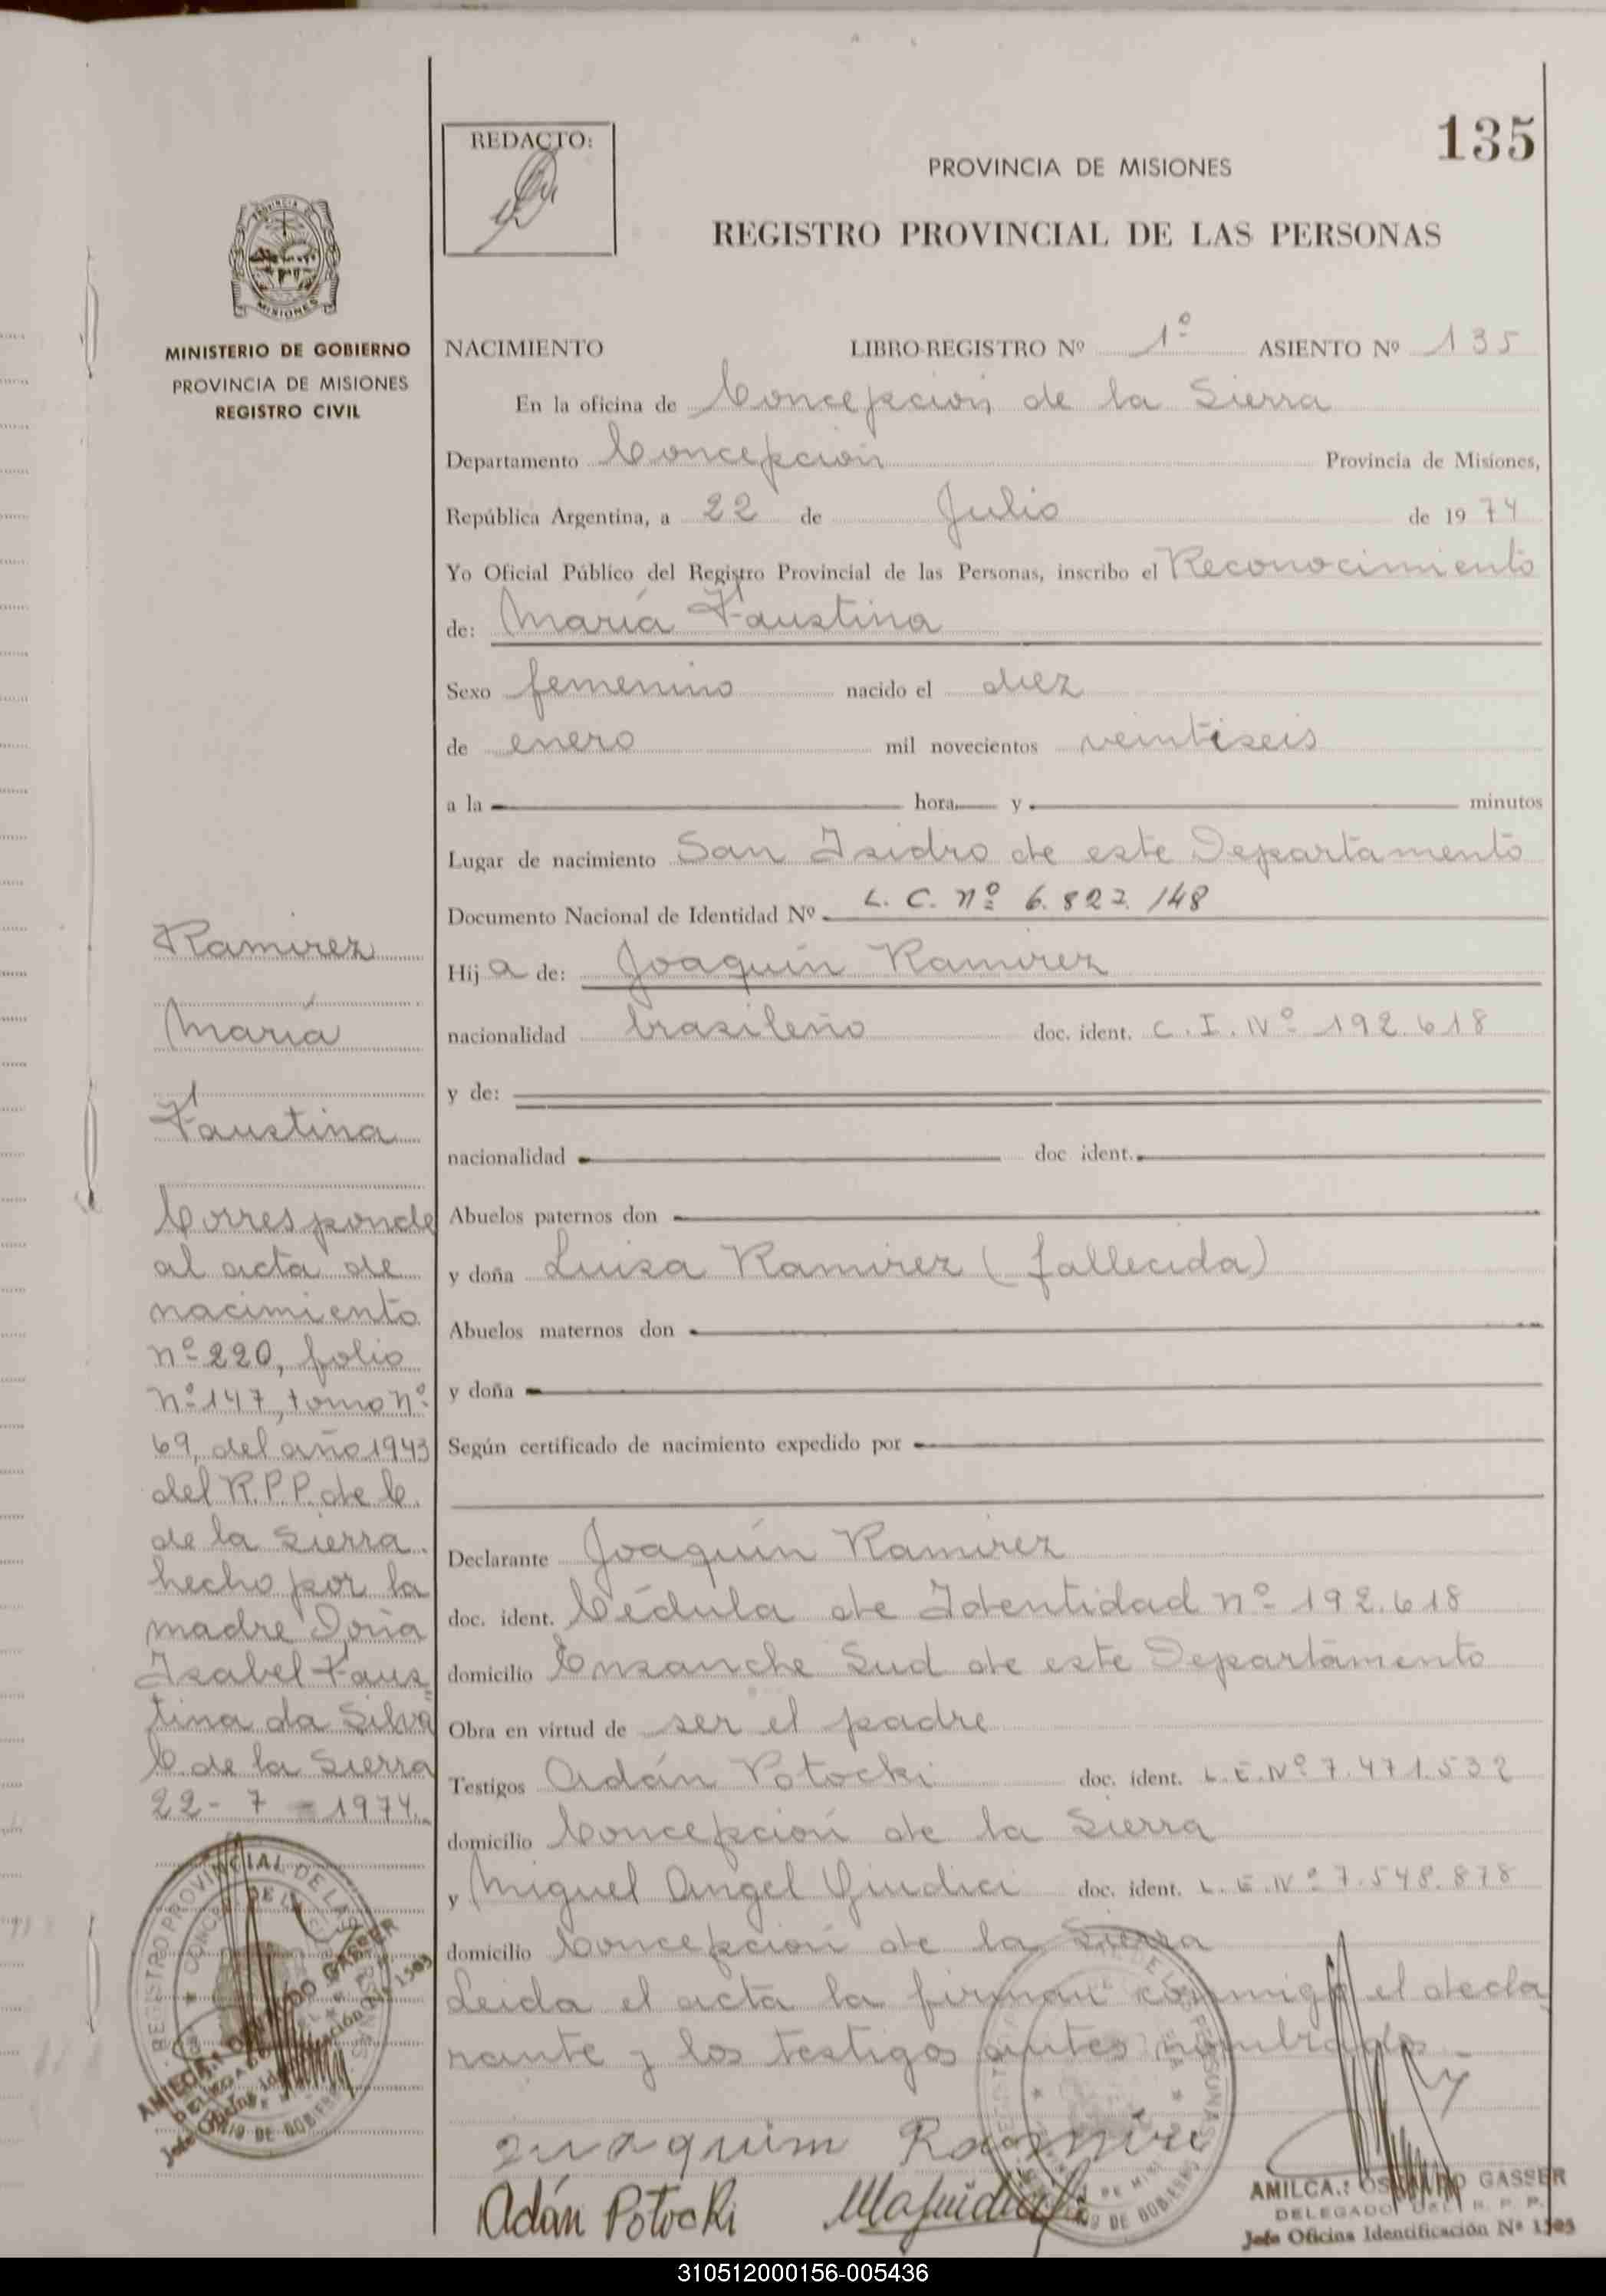 135
REDACTO:
PROVINCIA DE MISIONES
REGISTRO PROVINCIAL DE LAS PERSONAS
MISIONES
MINISTERIO DE GOBIERNO
PROVINCIA DE MISIONES
REGISTRO CIVIL
NACIMIENTO LIBRO-REGISTRO Nº 1º ASIENTO Nº 135
En la oficina de Concepción de la Sierra
Departamento Concepción Provincia de Misiones,
República Argentina, a 22 de Julio de 1974
Yo Oficial Público del Registro Provincial de las Personas, inscribo el Reconocimiento
de: María Faustina
Sexo femenino nacido el diez
de enero mil novecientos veintiseis
a la hora y minutos
Lugar de nacimiento San Isidro de este Departamento
Documento Nacional de Identidad Nº L. C. nº 6.827.148
Hija de: Joaquín Ramirez
nacionalidad brasileño doc. ident. C. I. Nº 192.618
y de:
nacionalidad doc ident.
Abuelos paternos don
y doña Luisa Ramirez (fallecida)
Abuelos maternos don
y doña
Según certificado de nacimiento expedido por
Declarante Joaquín Ramirez
doc. ident. Cédula de Identidad nº 192.618
domicilio Ensanche Sud de este Departamento
Obra en virtud de ser el padre
Testigos Adán Potocki doc. ident. L.E.Nº 7.471.532
domicilio Concepción de la Sierra
y Miguel Angel Giudici doc. ident. L.E.Nº 7.548.878
domicilio Concepción de la Sierra
Leida el acta la firman conmigo el decla
rante y los testigos antes nombrados
Ramirez
María
Faustina
Corresponde
al acta de
nacimiento
nº 220, folio
nº 147, tomo nº
69, del año 1943
del R.P.P. de C.
de la Sierra
hecho por la
madre Doña
Isabel Faus=
tina da Silva
C. de la Sierra
22-7-1974
Adán Potocki
DELEGADO DEL R. P. P.
Jefe Oficina Identificación Nº 1503
310512000156-005436